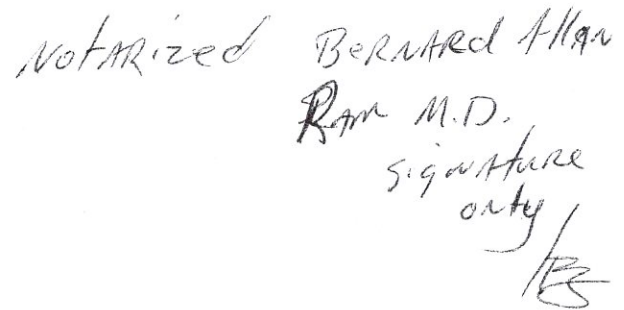 Notarized Bernard Allan
Ram M.D.
signature
only